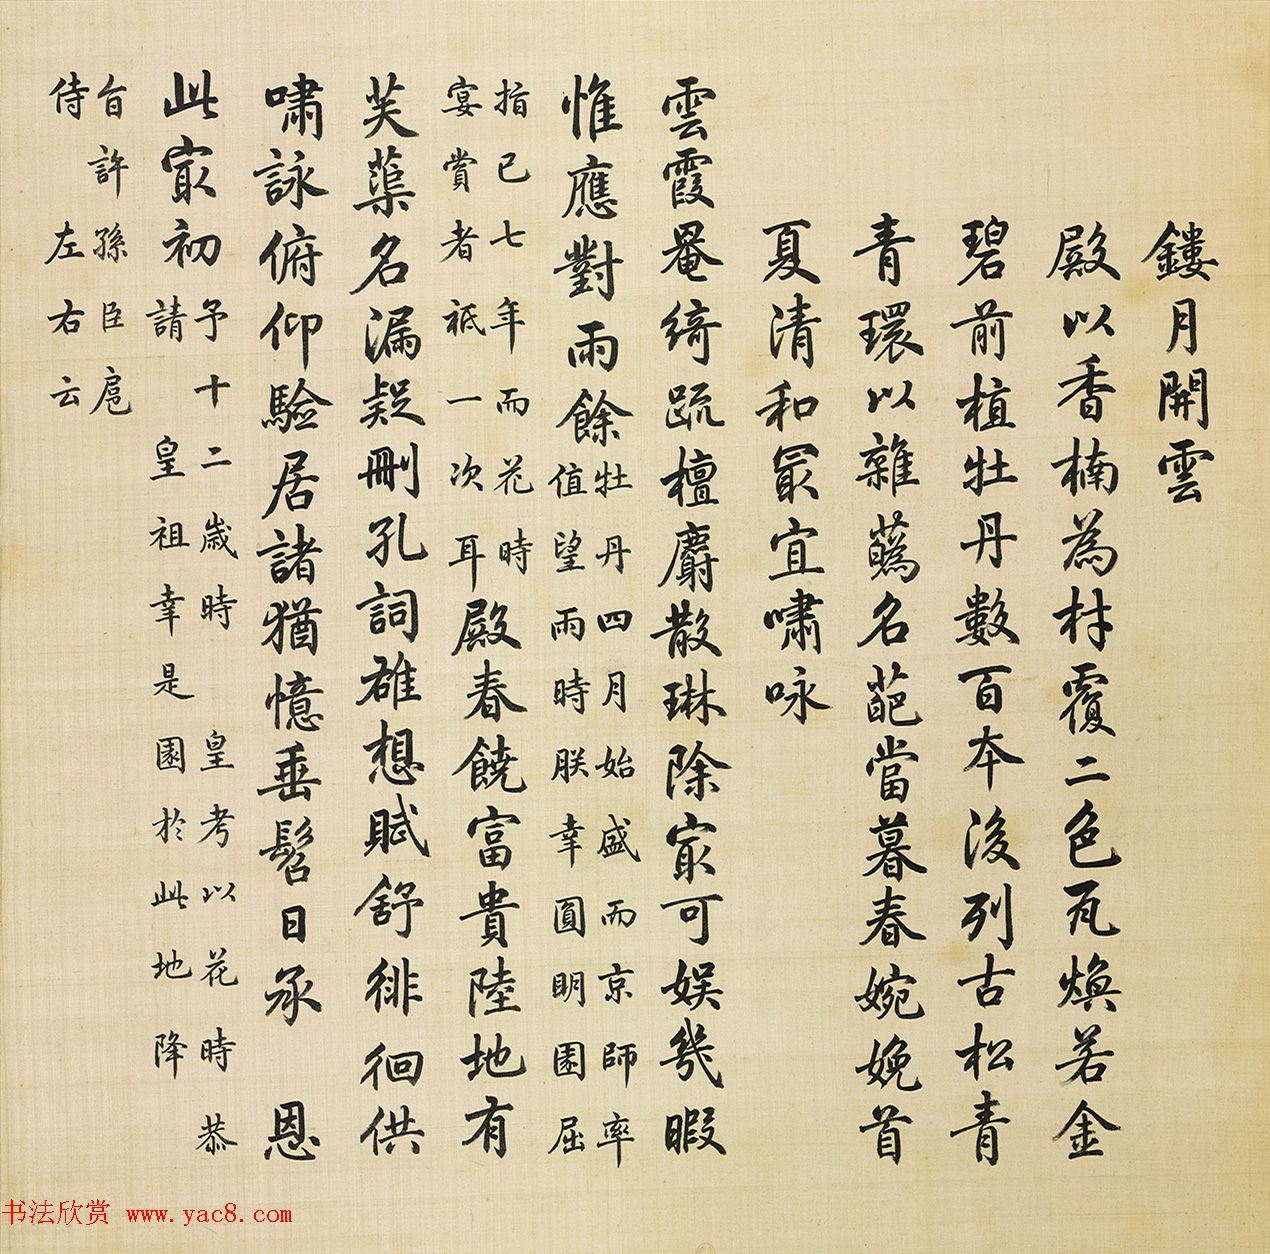 鏤月開雲
殿以香楠為材覆二色瓦煥若金
碧前植牡丹數百本後列古松青
青環以雜蘤名葩當暮春婉娩首
夏清和冣宜嘯咏
雲霞罨綺疏檀麝散琳除冣可娛幾暇
惟應對雨餘
牡丹四月始盛而京師率
值望雨時朕幸圓明園屈
指已七年而花時
宴賞者祗一次耳
殿春饒富貴陸地有
芙蕖名漏疑刪孔詞雄想賦舒徘徊供
嘯詠俯仰驗居諸猶憶垂髫日承恩
此冣初
予十二歲時皇考以花時恭
請皇祖幸是園於此地降
旨許孫臣扈
侍左右云
书法欣赏 www.yac8.com